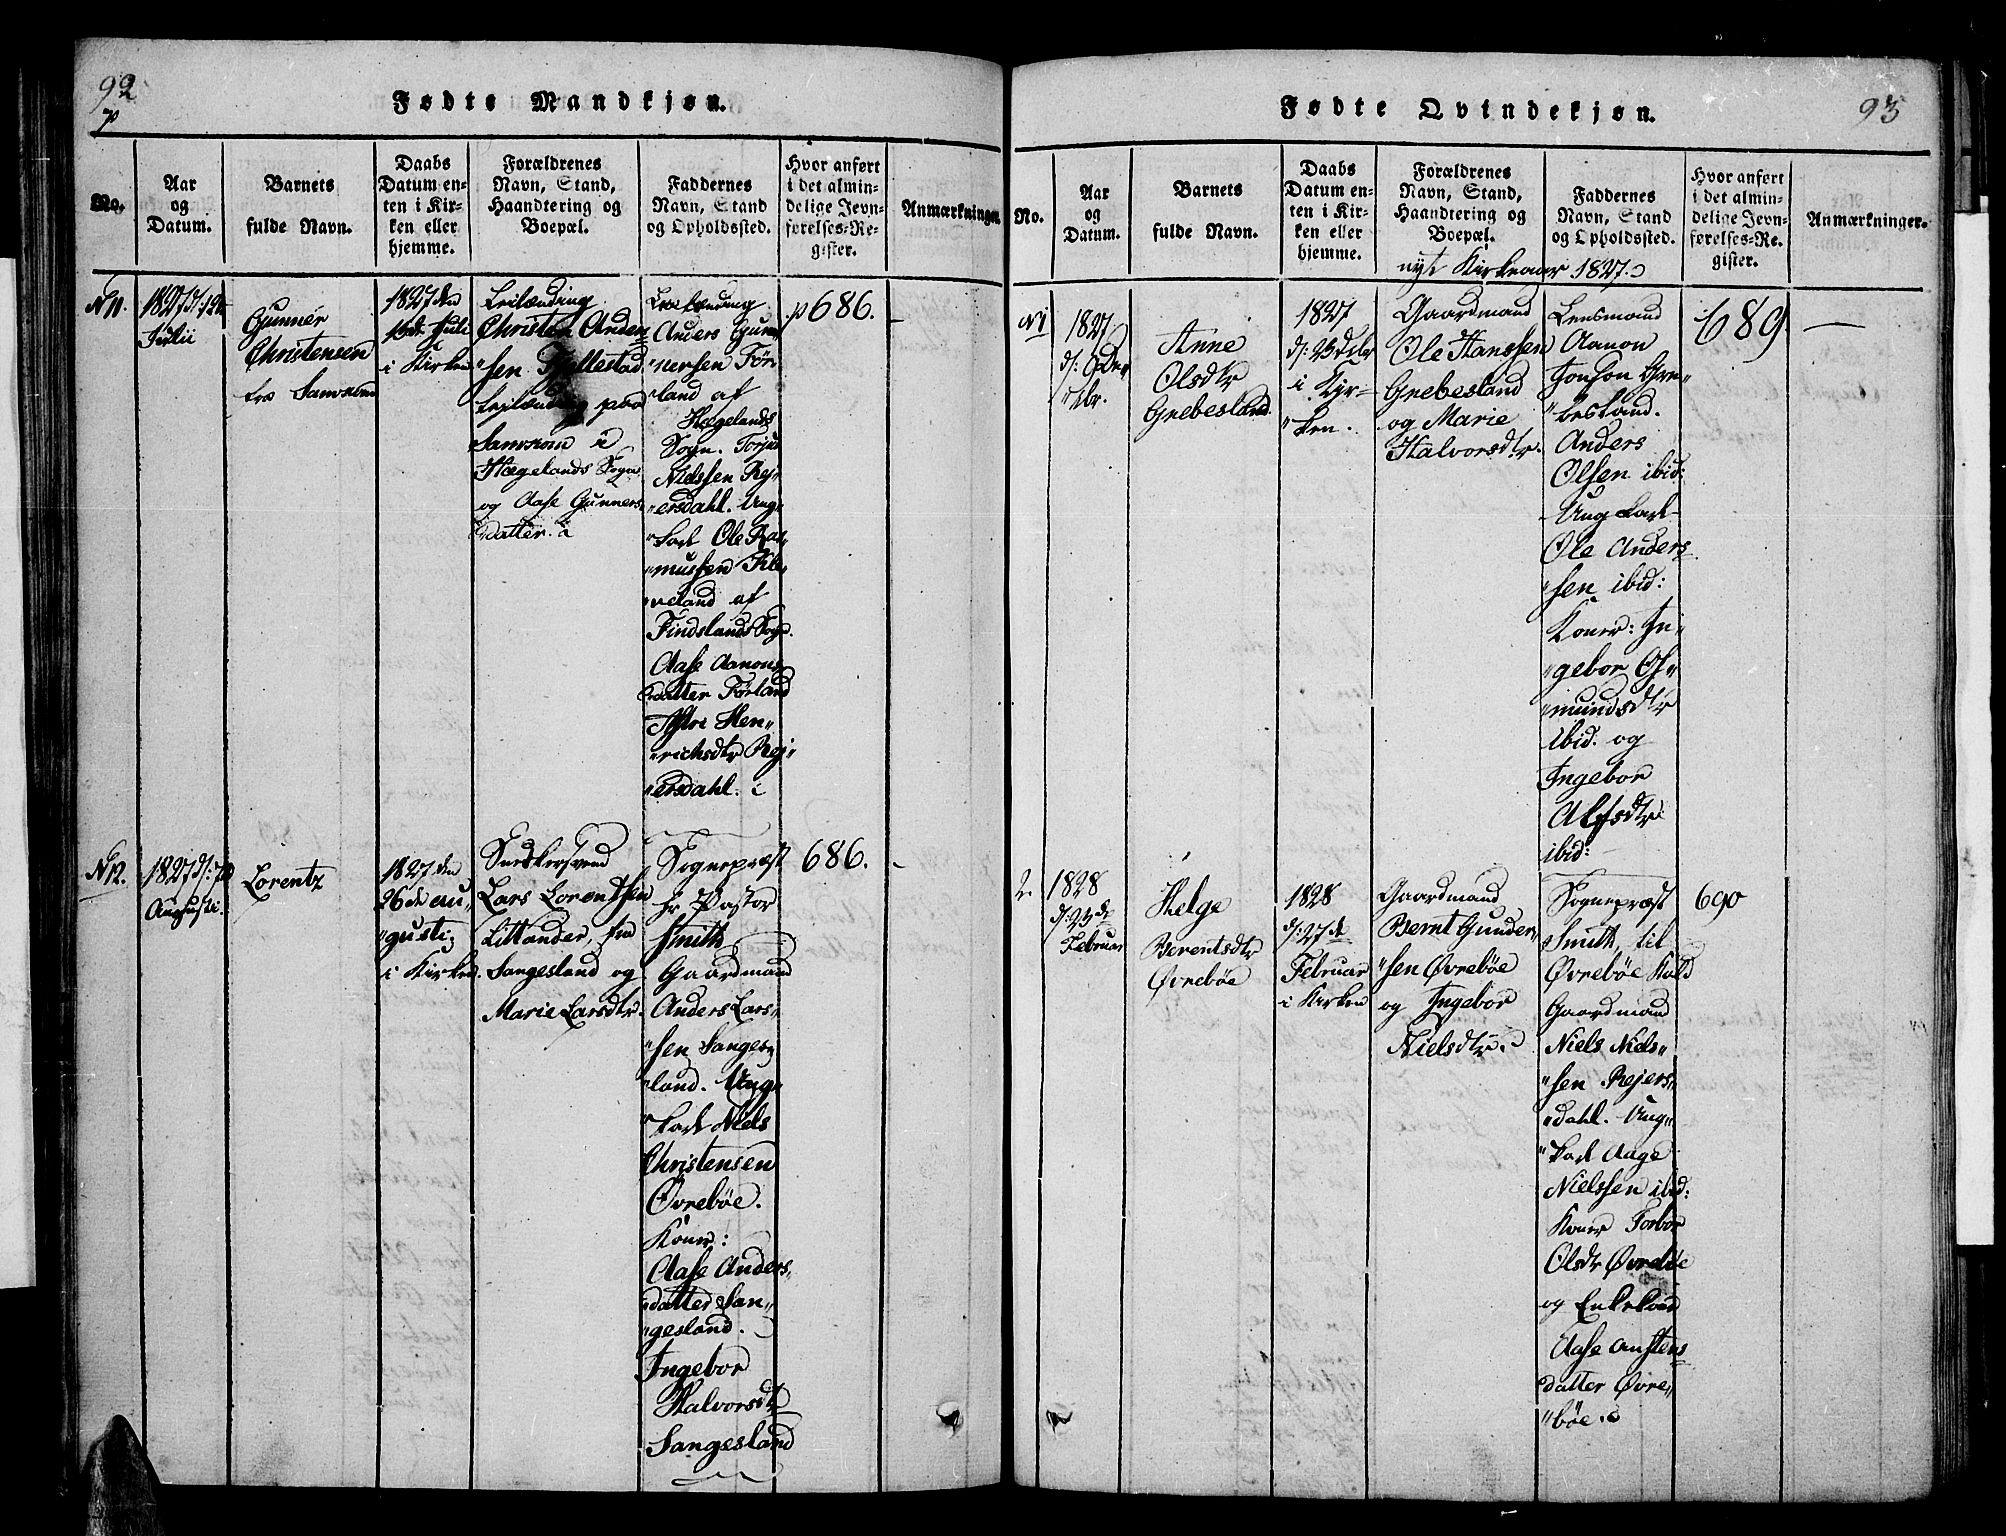 92
Fødte Mandkjøn.
No.
Aar
og
Datum.
Barnets
fulde Navn.
Daabs
Datum en-
ten i Kir-
ken eller
hjemme.
Forældrenes
Navn, Stand,
Haandtering og
Boepæl.
Faddernes
Navn, Stand
og Opholdssted.
Hvor anført
i det almin-
delige Jevn-
førelses-Re-
gister.
Anmærkninger.
N 11.
1827
Julii
Gunner
Christensen
1827 den
Juli
i Kirken
Leilænding
Christen Anden
"sen
Leilænding paa
i
Hægelands Sogn
og Aase Gunners
datter.
Leilænding
Anders Gun
"nersen Før
"land af
Hægelands
Sogn. Torjus
Nielssen Rej"
"ersdahl. Ung"
"karl Ole Ras"
"mussen Kle"
"veland af
Findslands Sogn.
Aase Aanons
datter Førland
Hen"
"richsdtr Rej"
"ersdahl.
p 686.
N 12.
1827 d:
Augusti.
Lorentz
1827 den
26de au"
"gusti
i Kirken.
Snedkersvend
Lars Lorentsen
Littander, fra
Sangesland og
Marie Larsdtr.
Sognepræst
Hr Pastor
Smith
Gaardmand
Anders Lars"
"sen Sanges"
"land. Ung"
"karl Niels
Christensen
Øvrebøe.
Koner:
Aase Anders"
"datter San"
"gesland.
Ingebor
Halvorsdtr
Sangesland
686.
93
Fødte Qvindekjøn.
No.
Aar
og
Datum.
Barnets
fulde Navn.
Daabs
Datum en-
ten i Kir-
ken eller
hjemme.
Forældrenes
Navn, Stand,
Haandtering og
Boepæl.
Faddernes
Navn, Stand
og Opholdssted.
Hvor anført
i det almin-
delige Jevn-
førelses-Re-
gister.
Anmærkninger.
nyt Kirkeaar 1827.
N 1
1827
Anne
Olsdtr
Grebesland
1827
d: 23 dcbr
i Kir"
"ken.
Gaardmand
Ole Hanssen
Grebesland
og Marie
Halvorsdtr.
Lensmand
Aanon
Jonson Gre"
"besland.
Anders
Olsen ibid:
Ung karl
Ole Anders
"sen ibid:
Koner: In"
"gebor Os"
"mundsdtr
ibid. og
Ingebor
Alfsdtr
ibid:
689
2.
1828
d: 23de
Februar
Helge
Berentsdtr
Øvrebøe
1828
d: 27de
Februar
i Kirken
Gaardmand
Bernt Gunder"
"sen Øvrebøe
og Ingebor
Nielsdtr.
Sognepræst
Smith, til
Øvrebøe Kald
Gaardmand
Niels Niels"
"sen Rejers"
"dahl. Ung"
"karl Aage
Nielssen ibid:
Koner Torbor
Olsdtr Øvrebøe
og Enkekone
Aase Austens
datter Øvre"
"bøe.
690